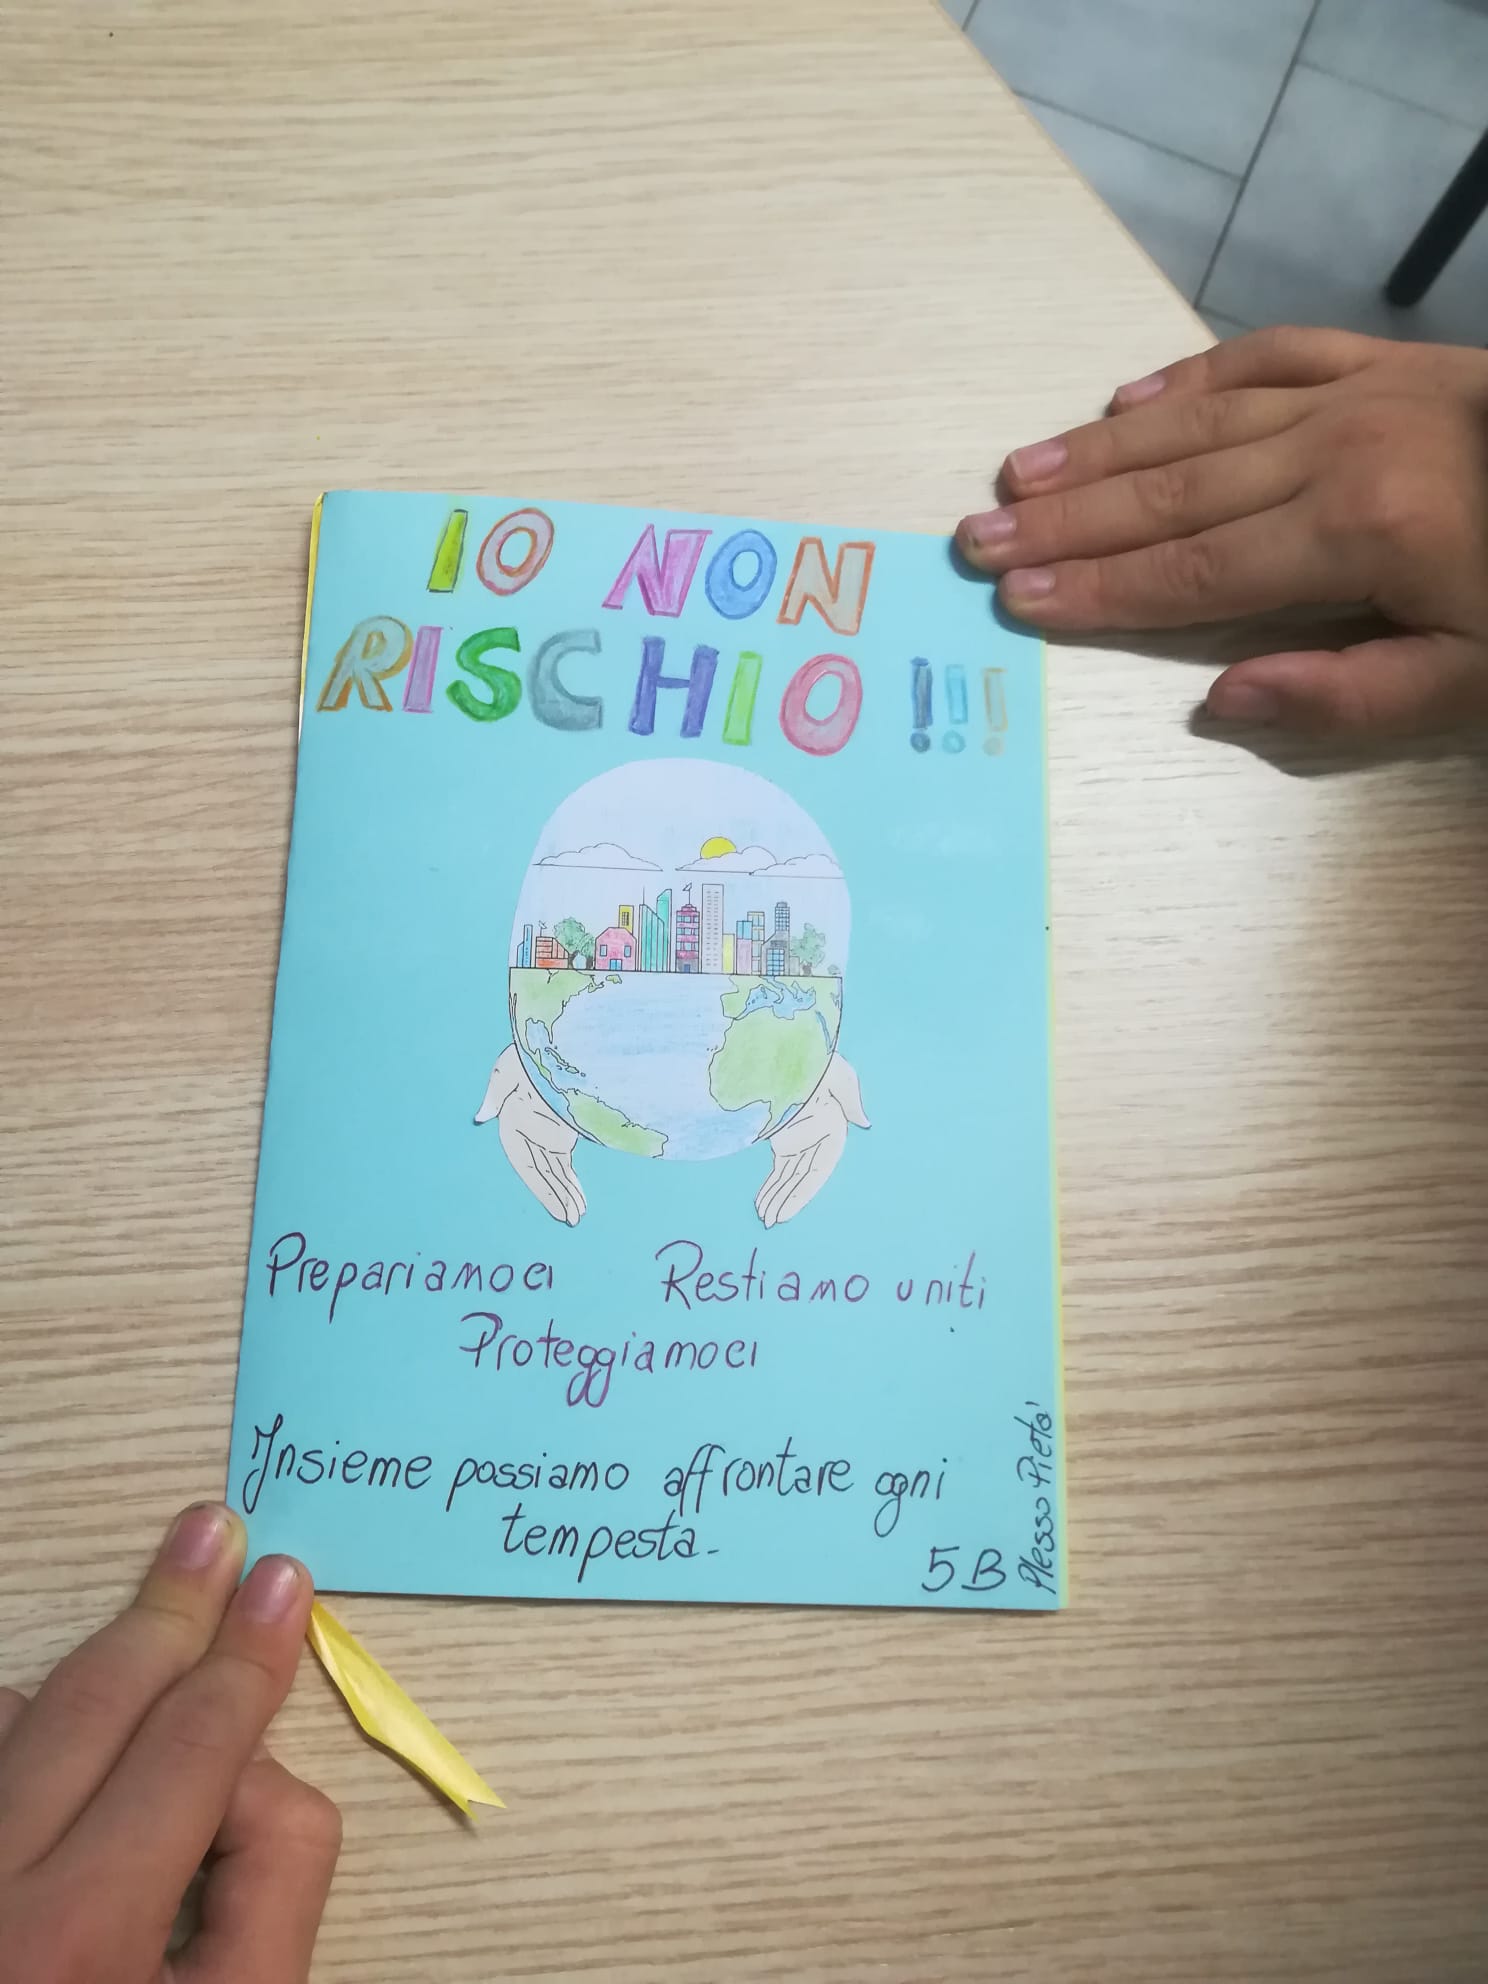 IO NON
RISCHIO !!!
Prepariamoci Restiamo uniti
Proteggiamoci
Insieme possiamo affrontare ogni
tempesta.
5B
Plesso Pietà